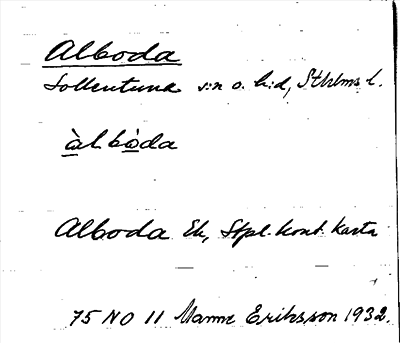 Alboda
Sollentuna s:n o. h:d, Sthlms l.
àlbòda
Alboda Ek, Stpl. kont. karta
75 NO 11 Manne Eriksson 1932.